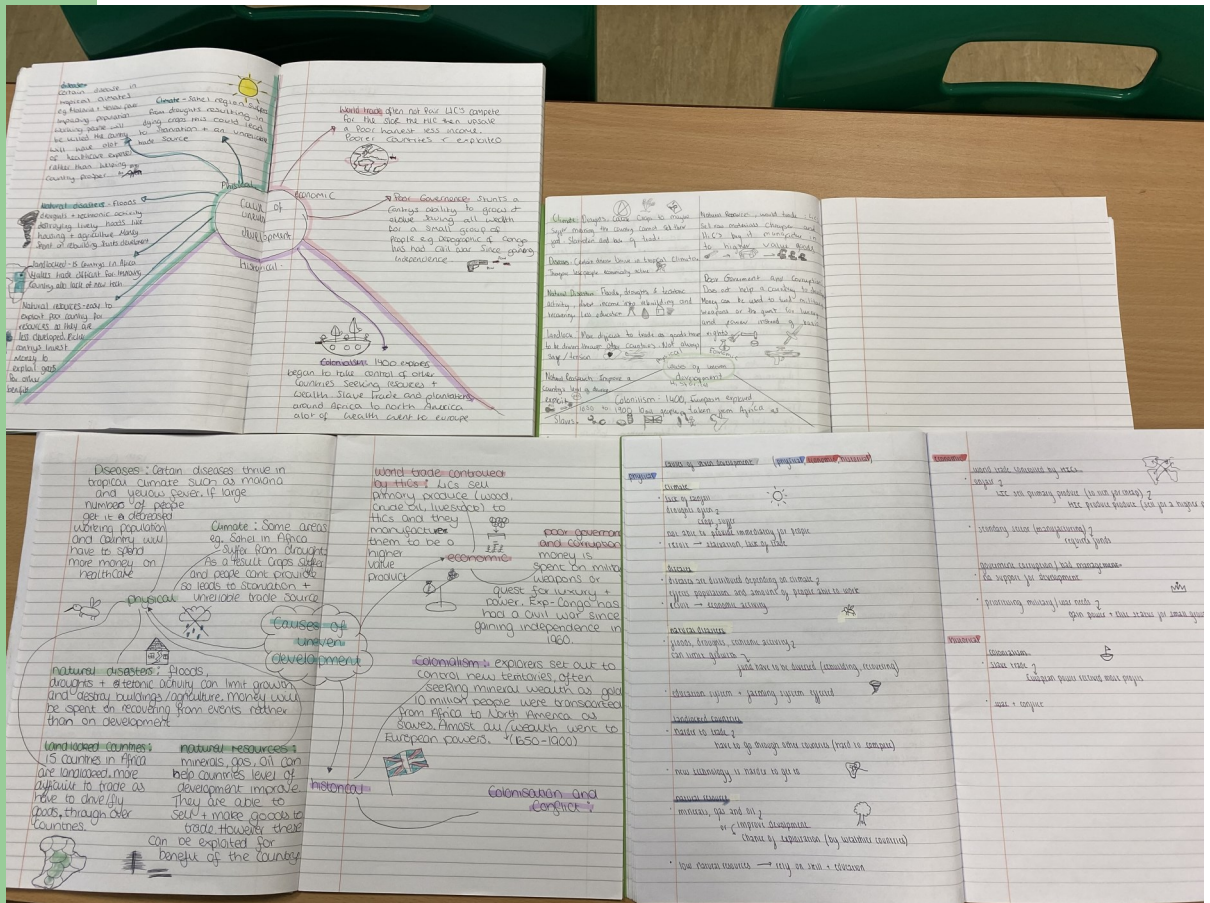 diseases
certain disease in
tropical climates
eg Malaria + Yellow fever
impacting population
working people will
be wasted the country
will have alot
of healthcare expenses
rather than helping
country prosper
Climate - Sahel region suffers
from droughts resulting in
dying crops this could lead
to starvation + an unreliable
trade source
Physical
Natural disasters - Floods
droughts + tectonic activity
destroying lively hoods like
housing + agriculture Money
spent on rebuilding limits development
landlocked - 15 countries in Africa
Makes trade difficult for
country also lack of new tech
Natural resources - easy to
exploit poor country for
resources as they are
less developed. Richer
countrys invest
money to
exploit
for other
benefit
causes of
uneven
development
economic
Historical
World trade often not fair LIC's compete
for the sick the HIC then upsale
a Poor harvest less income.
Poorer countries r exploited
Poor Governence stunts a
contrys ability to grow +
evolve sowing all wealth
for a small group of
people e.g Democratic of Congo
has had civil war since gaining
independence
Colonialism 1400 explorers
began to take control of other
countries seeking resources +
wealth. Slave Trade and plantations
around Africa to north America
alot of wealth went to europe
Climate:
Natural Disasters Floods, droughts + tectonic
activity, divert income into rebuilding and
recovering. Less education
Landlock: More difficult to trade as goods have
to be driven through other countries. Not always
safe / tension
Poor Goverment and Corruption
Does not help a country to develop
Money can be used to build military
weapons or the quest for luxury
and power instead of basic
rights
Colonilism: 1400, European explored
1650 to 1900 10mil people taken from Africa as
Slaves.
Diseases: Certain diseases thrive in
tropical climate such as malaria
and yellow fever. If large
numbers of people
get it a decreased
working population
and country will
have to spend
more money on
healthcare
Climate: Some areas
eg. Sahel in Africa
suffer from droughts
As a result crops suffer
and people cant provide
so leads to starvation +
unreliable trade source
physical
Causes of
uneven
development
natural disasters: floods,
droughts + tetonic activity can limit growth
and destroy buildings/agriculture. money would
be spent on recovering from events rather
than on development
Landlocked countries:
15 countries in Africa
are landlocked. more
difficult to trade as
have to drive/fly
goods, through over
countries.
natural resources:
minerals, gas, oil can
help countries level of
development improve.
They are able to
sell + make goods to
trade. However these
can be exploited for
benefit of the country
World trade controlled
by HICs: LICs sell
primary produce (wood,
crude oil, livestock) to
HICs and they
manufacture
them to be a
higher
value
product
economic
poor governance
and corruption
money is
spent on military
weapons or
quest for luxury +
power. Exp-Congo has
had a civil war since
gaining independence in
1960.
Colonialism: explorers set out to
control new teritories, often
seeking mineral wealth as gold
10 million people were transported
from Africa to North America as
slaves. Almost all wealth went to
European powers. (1650-1900)
historical
Colonisation and
Conflict:
causes of uneven development (physical, economic, historical)
physical
climate
lack of rainfall
droughts often
crops suffer
not able to provide immediately for people
result → starvation, lack of trade
diseases
diseases are distributed depending on climate
effects population and amount of people able to work
result → economic activity
natural disasters
floods, droughts, tectonic activity
can limit growth
fund have to be diverted (rebuilding, recovering)
education system + farming system effected
landlocked countries
harder to trade
have to go through other countries (hard to compete)
new technology is harder to get to
natural resources
minerals, gas and oil
improve development
chance of exploitation (by wealthier countries)
low natural resources → rely on skill + education
economic
world trade controlled by HICs
LIC sell primary produce
secondary sector (manufacturing)
requires funds
government corruption / bad management
no support for development
prioritising military / war needs
historical
colonialism
slave trade
European power recieved most profit
war + conflict